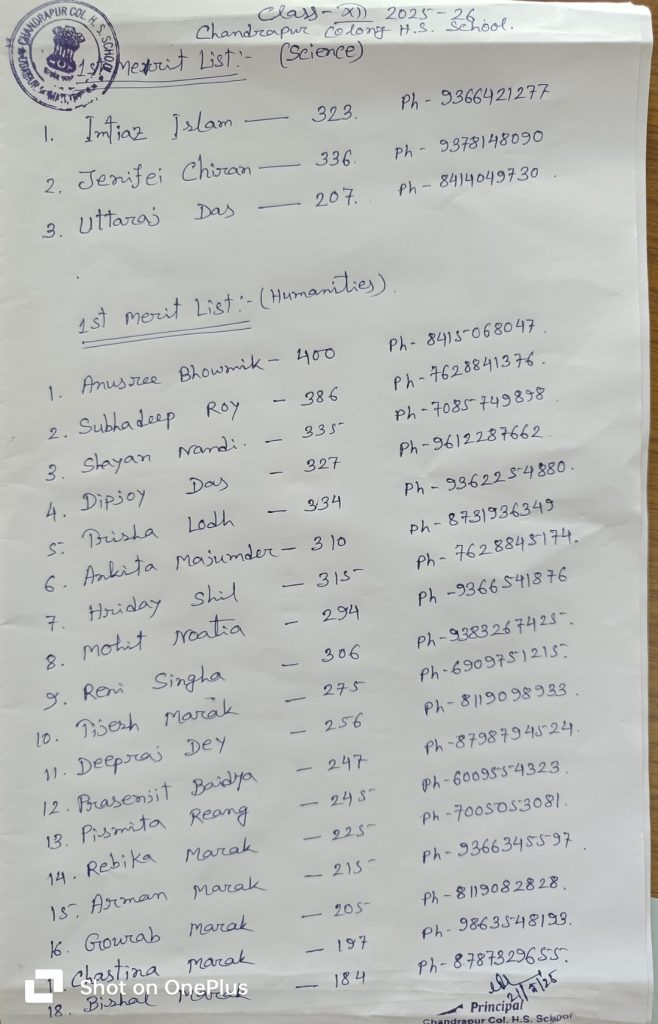 Class - XII 2025-26
Chandrapur Colony H.S. School.
CHANDRAPUR COL. H. S. SCHOOL
1st Merit List:- (Science)
1. Imtiaz Islam — 323. Ph - 9366421277
2. Jenifei Chiran — 336. Ph - 9378148090
3. Uttaraj Das — 207. Ph - 8414049730.
1st Merit List:- (Humanities).
1. Anusree Bhowmik - 400 Ph- 8415068047.
2. Subhadeep Roy - 386 Ph-7628841376.
3. Shayan Nandi. - 335 Ph-7085749898
4. Dipjoy Das - 327 Ph-9612287662.
5. Trisha Lodh - 334 Ph - 9362254880.
6. Ankita Majumder - 310 Ph - 8731936349
7. Hriday Shil - 315 Ph- 7628845174.
8. Mohit Noatia - 294 Ph -9366541876
9. Reni Singha - 306 Ph-9383267425.
10. Tijesh Marak - 275 Ph-6909751215.
11. Deepraj Dey - 256 Ph- 8119098933.
12. Prasenjit Baidya - 247 Ph-8798794524.
13. Pismita Reang - 245 Ph-6009554323.
14. Rebika Marak - 225 Ph-7005053081.
15. Arman Marak - 215 Ph -9366345597.
16. Gourab Marak - 205 Ph- 8119082828.
Chastina Marak - 197 Ph- 9863548193.
18. Bishal Marak - 184 Ph-8787329655.
21/5/25
Principal
Chandrapur Col. H.S. School
Shot on OnePlus